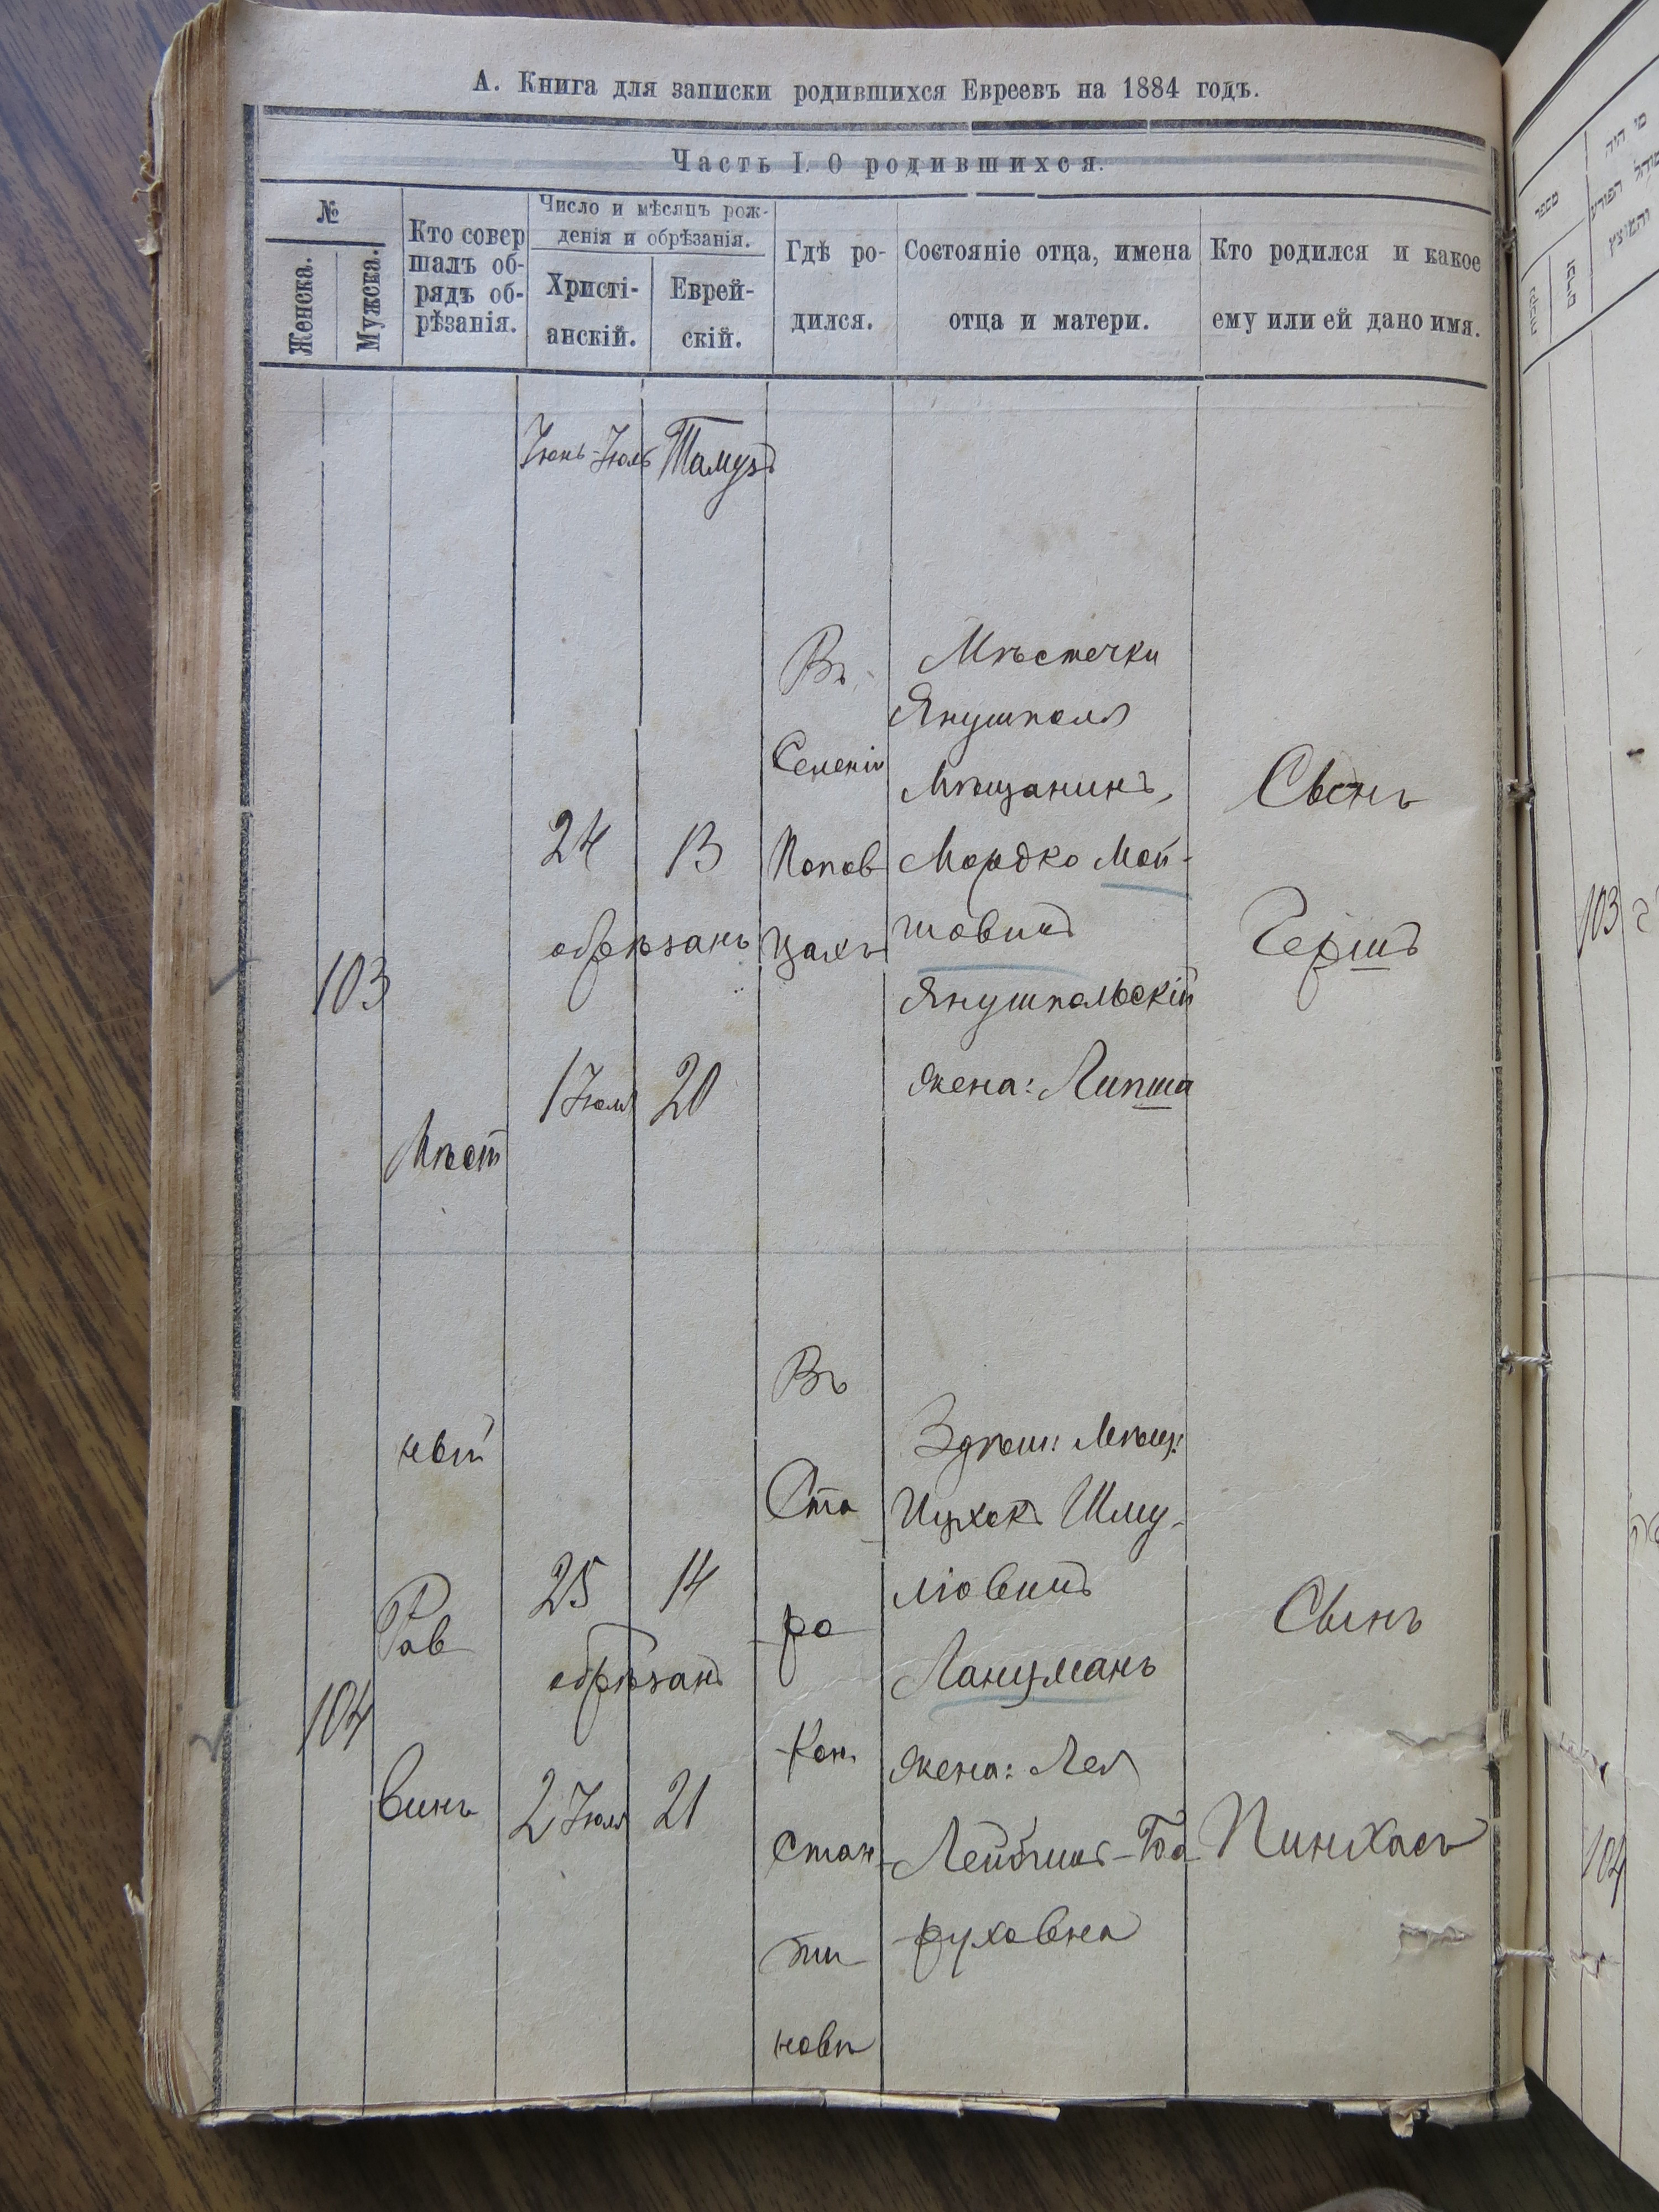 А. Книга для записки родившихся Евреевъ на 1884 годъ.
Часть I. О родившихся.
№
Женска.
Мужска.
Кто совер
шалъ об-
рядъ об-
рѣзанія.
Число и мѣсяцъ рож-
денія и обрѣзанія.
Христі-
анскій.
Еврей-
скій.
Гдѣ ро-
дился.
Состояніе отца, имена
отца и матери.
Кто родился и какое
ему или ей дано имя.
Іюнь-Іюль
Тамузъ
103
24
13
обрѣзанъ
1 Іюля
20
Въ
Попов
цахъ
Мѣстечки
Янушполя
Мѣщанинъ,
Мордко Мой-
шовичъ
Янушпольскій
жена: Липша
Сынъ
Гершъ
Мѣст
ный
Рав
винъ
104
25
14
обрѣзанъ
2 Іюля
21
Въ
Ста
ро
Кон
стан-
ти
новѣ
Здѣш: Мѣщ:
Ицхокъ Шму-
ліовичъ
Ланцманъ
жена: Лея
Лейбишъ-Бо
руховна
Сынъ
Пинхасъ
מספר
103
104